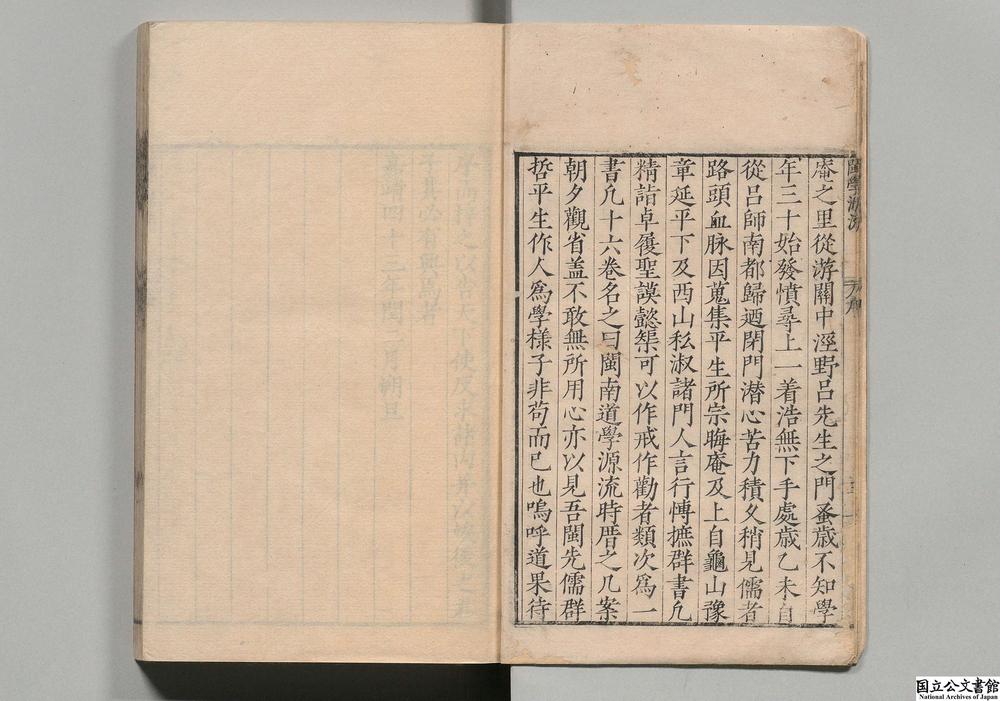 菴之里從游關中涇野呂先生之門蚤歲不知學
年三十始發憤尋上一着浩無下手處歲乙未自
從呂師南都歸迺閉門潜心苦力積久稍見儒者
路頭血脉因蒐集平生所宗晦庵及上自龜山豫
章延平下及西山私淑諸門人言行慱摭群書凢
精詣卓履聖謨懿榘可以作戒作勸者類次爲一
書凢十六巻名之曰閩南道學源流時厝之几案
朝夕觀省盖不敢無所用心亦以見吾閩先儒群
哲平生作人爲學様子非苟而已也嗚呼道果待
嘉靖四十三年閏二月朔旦
国立公文書館
National Archives of Japan